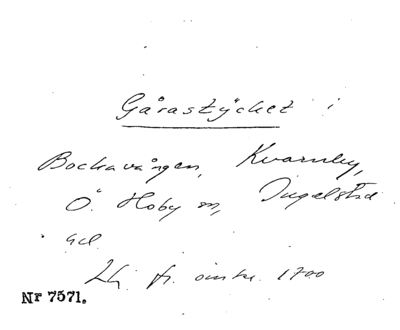 Gårastycket i
Bockavången, Kvarnby,
Ö. Hoby sn, Ingelstad
hd.
fr. omkr. 1700
Nr 7571.